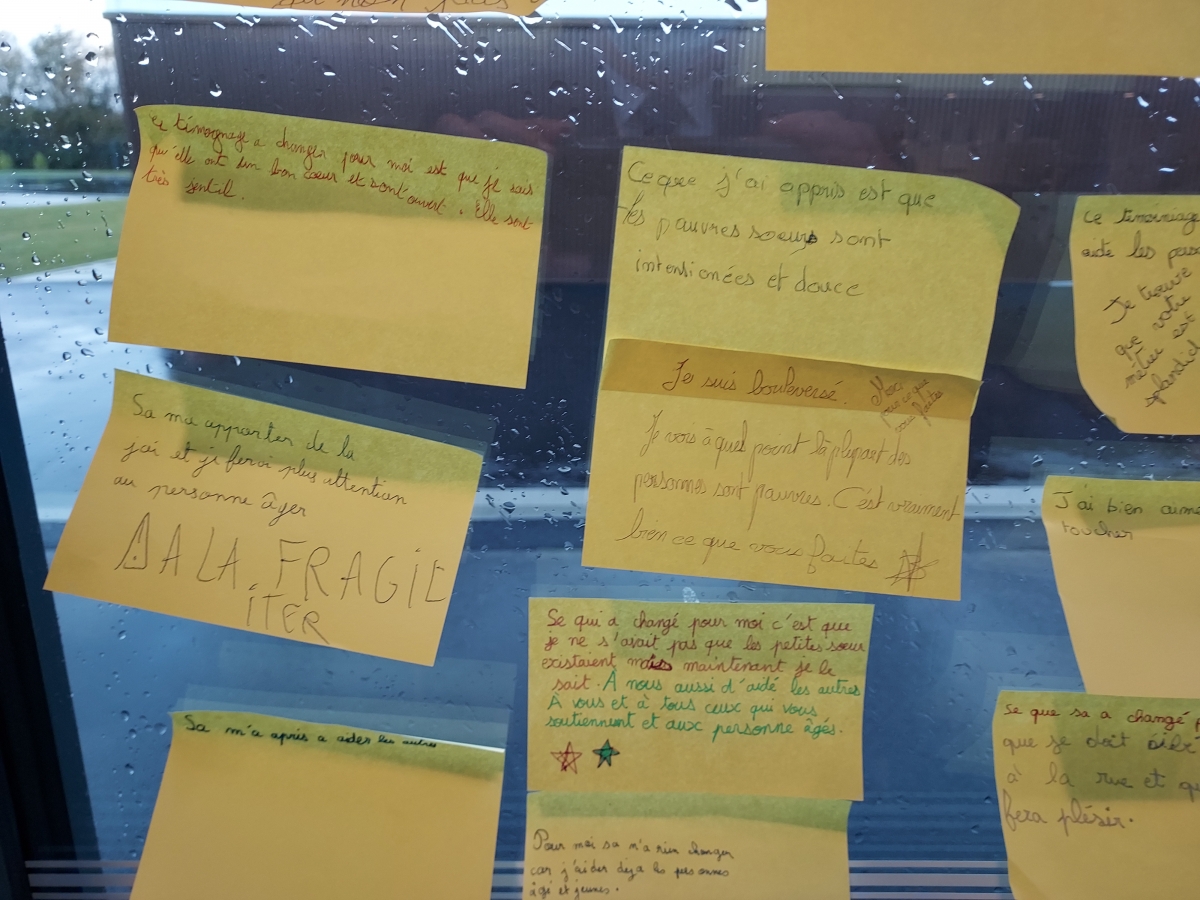 ce témoignage a changer pour moi est que je sais
qu'elle ont un bon coeur et sont ouvert. Elle sont
très gentil.
Ce que j'ai appris est que
les pauvres soeurs sont
intensionées et douce
Je suis bouleversé.
Merci
pour ce que
vous faites
Je vois à quel point la plupart des
personnes sont pauvres. C'est vraiment
bien ce que vous faites
Ce témoiniage
aide les perso
Je trouve
que votre
métier est
splandid
Sa ma apporter de la
joi et je ferai plus attention
au personne âger
A LA FRAGIL
ITER
J'ai bien aime
toucher
Se qui a changé pour moi c'est que
je ne s'avait pas que les petites soeur
existaient mais maintenant je le
sait. A nous aussi d'aidé les autres
A vous et à tous ceux qui vous
soutiennent et aux personne âgés.
Sa m'a apris a aider les autres
Se que sa a changé p
que je doit aider
à la rue et qu
fera plésir.
Pour moi sa m'a rien changer
car j'aider déja les personnes
âgé et jeunes.